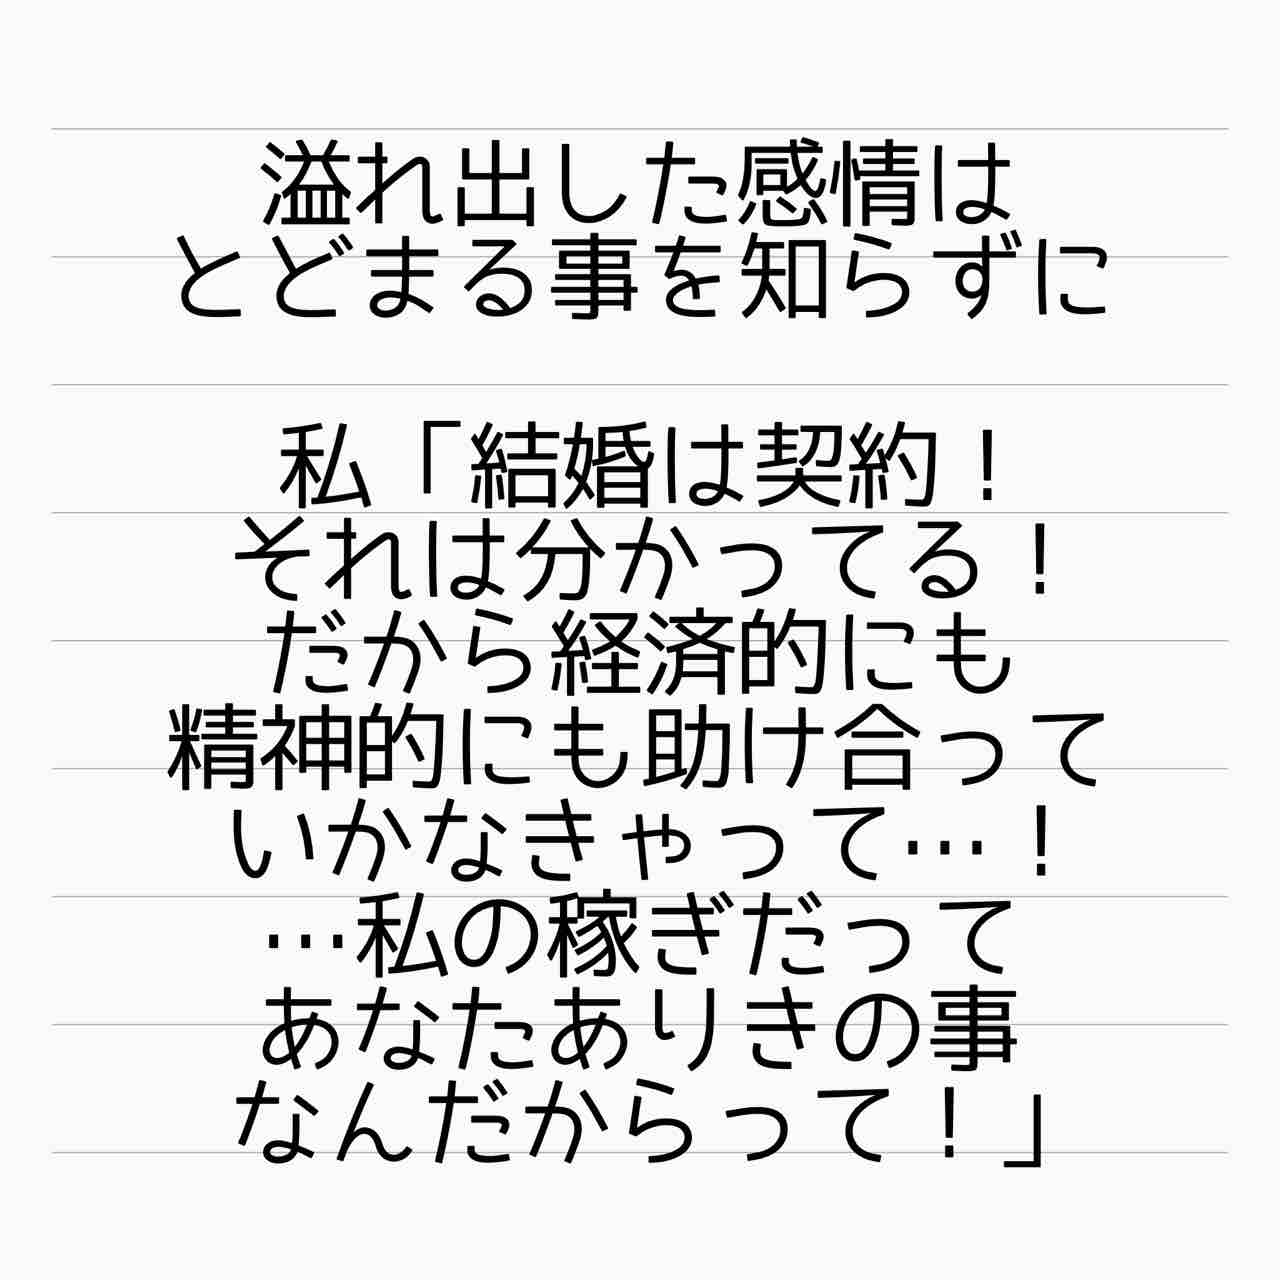 溢れ出した感情は
とどまる事を知らずに
私「結婚は契約！
それは分かってる！
だから経済的にも
精神的にも助け合って
いかなきゃって…！
…私の稼ぎだって
あなたありきの事
なんだからって！」